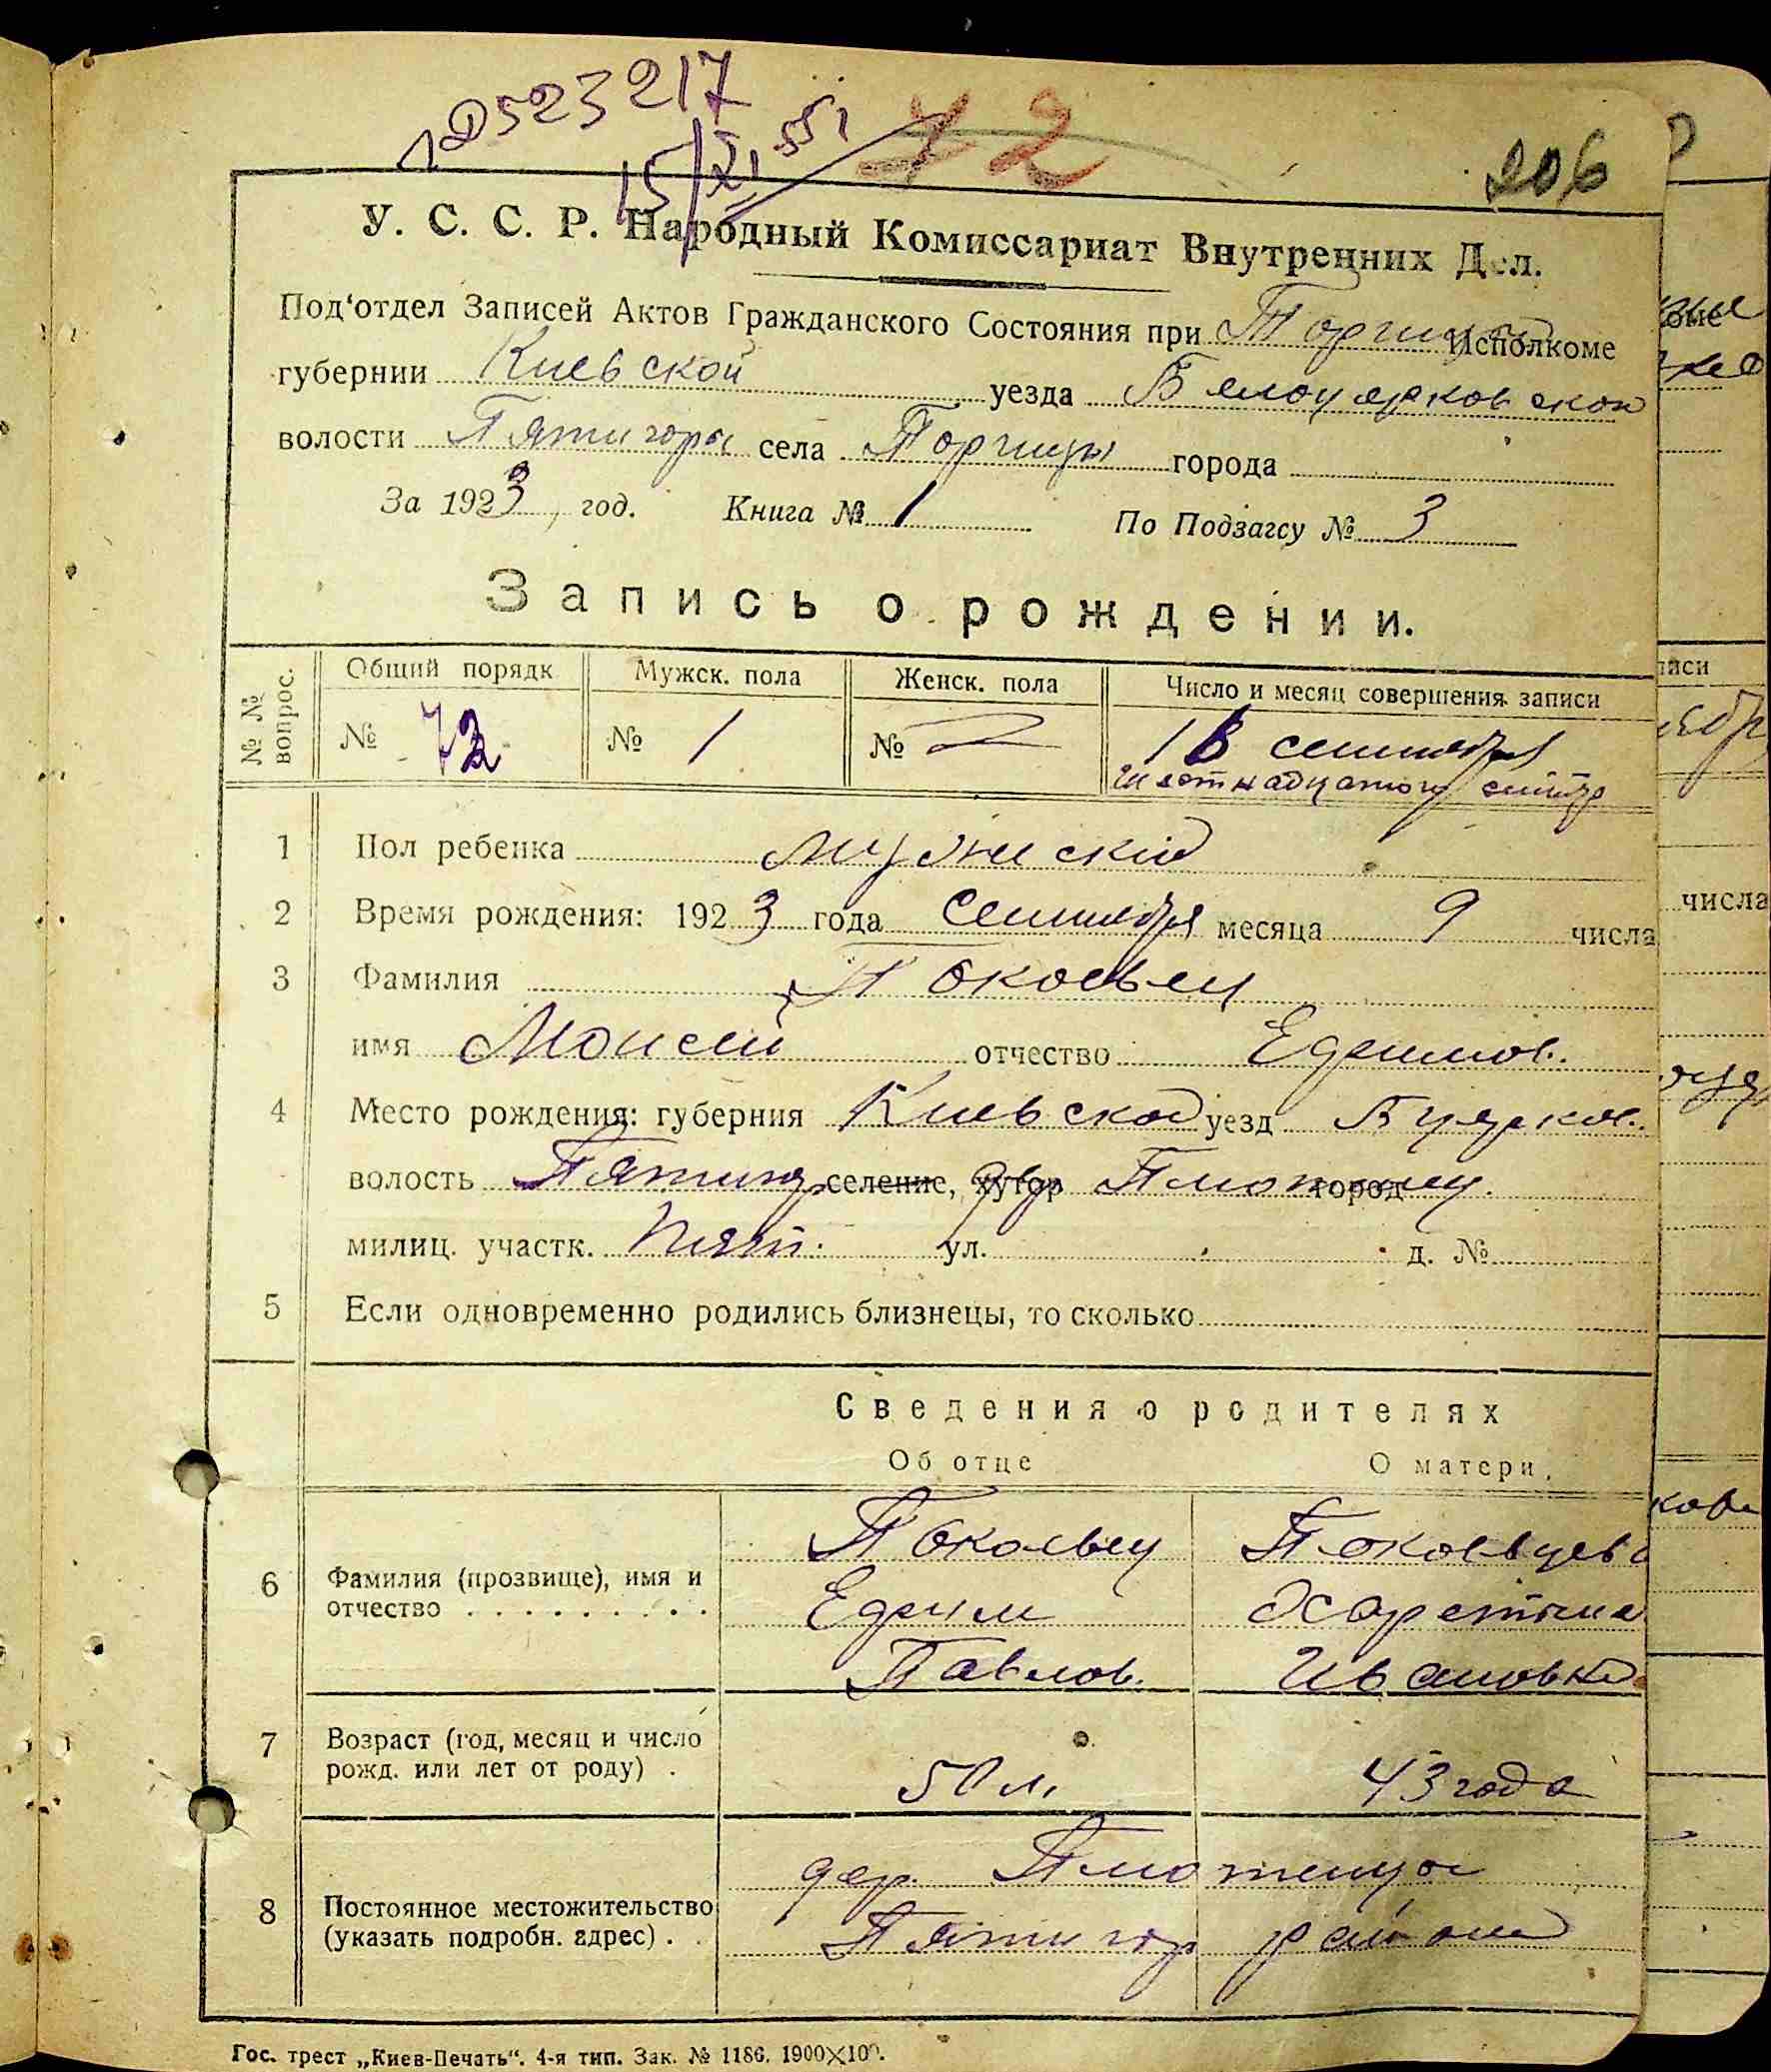 523217
15/XI 55
72
206
У. С. С. Р. Народный Комиссариат Внутренних Дел.
Под‘отдел Записей Актов Гражданского Состояния при Торчиц Исполкоме
губернии Киевской уезда Белоцерковской
волости Пятигоры села Торчицы города
За 1923, год. Книга № 1 По Подзагсу № 3
Запись о рождении.
№ № вопрос. Общий порядк Мужск. пола Женск. пола Число и месяц совершения записи
№ 72 № 1 № 16 сентября
1 Пол ребенка мужеский
2 Время рождения: 1923 года Сентября месяца 9 числа
3 Фамилия Покоевец
имя Моисей отчество Ефимов.
4 Место рождения: губерния Киевской уезд Бцерков.
волость Пятигор селение, хутор город
милиц. участк. Пят. ул. д. №
5 Если одновременно родились близнецы, то сколько
Сведения о родителях
Об отце О матери.
6 Фамилия (прозвище), имя и отчество . . . . . . . . . .
Покоевец Покоевцева
Ефим
Павлов. Ивановна
7 Возраст (год, месяц и число рожд. или лет от роду) .
50 л. 43 года
8 Постоянное местожительство (указать подробн. адрес) . .
дер.
Пятигор района
Гос. трест „Киев-Печать“. 4-я тип. Зак. № 1186. 1900×100.